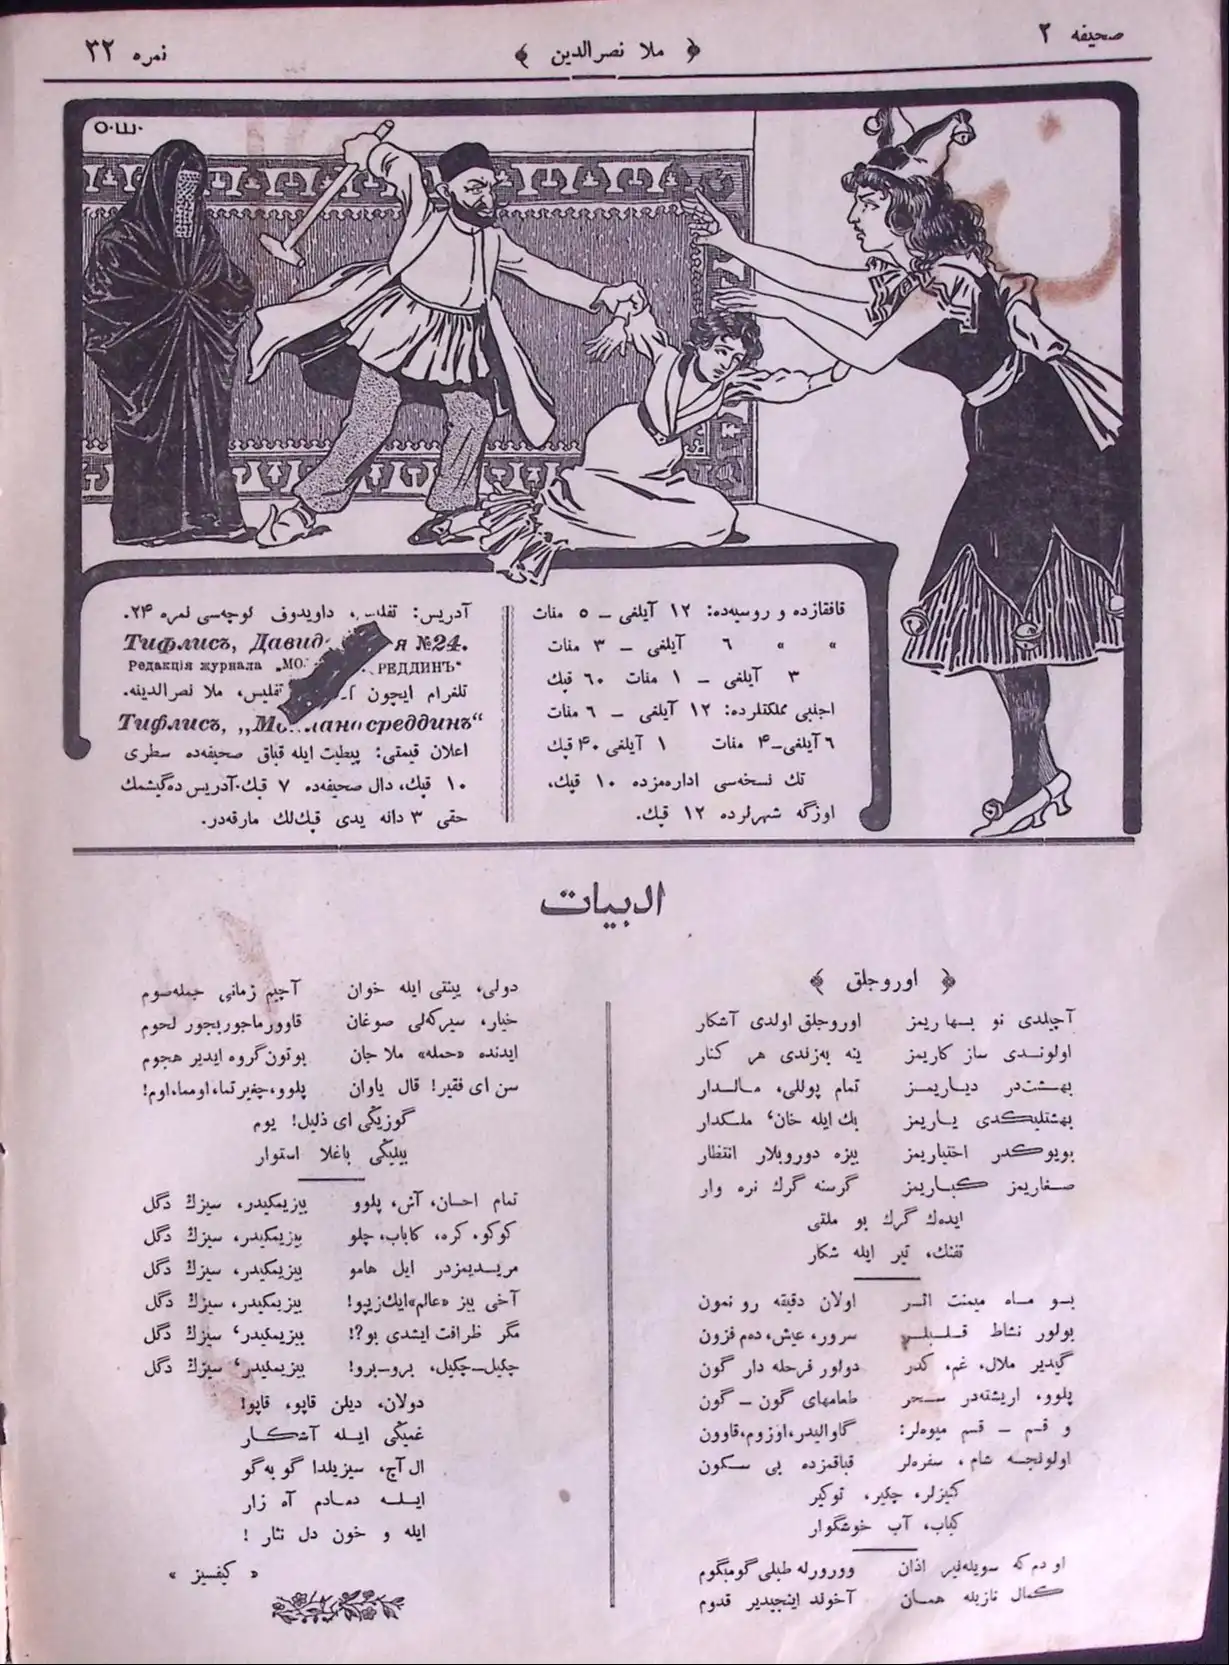 صحیفه ۲
﴿ ملا نصرالدین ﴾
نمره ۳۲
О.Ш.
قافقازده و روسیه‌ده: ۱۲ آیلغی ــ ۵ منات
» » ۶ آیلغی ــ ۳ منات
۳ آیلغی ــ ۱ منات ۶۰ قپك
اجنبی مملکتلرده: ۱۲ آیلغی ــ ۶ منات
۶ آیلغی ــ ۴ منات ۱ آیلغی ۴۰ قپك
تك نسخه‌سی اداره‌مزده ۱۰ قپك،
اوزگه شهرلرده ۱۲ قپك.
آدریس: تفلیس، داویدوف كوچه‌سی نمره ۲۴.
Тифлисъ, Давид я №24.
Редакція журнала „МО РЕДДИНЪ“
تلغرام ایچون تفلیس، ملا نصرالدینه.
Тифлисъ, „Молланасреддинъ“
اعلان قیمتی: پیطیت ایله قباق صحیفه‌ده سطری
۱۰ قپك، دال صحیفه‌ده ۷ قپك. آدریس ده‌گیشمك
حقی ۳ دانه یدی قپك‌لك مارقه‌در.
ادبیات
﴿ اوروجلق ﴾
آچیلدی نو بهاریمز اوروجلق اولدی آشكار
اولوندی ساز كاریمز ینه به‌زندی هر كنار
بهشت‌در دیاریمز تمام پوللی، مالدار
بهشتلیكدی یاریمز بك ایله خان، ملكدار
بویوكدر اختیاریمز بیزه دوروبلار انتظار
صغاریمز كباریمز گرسنه گرك نره وار
ایده‌ك گرك بو ملقی
تفنك، تیر ایله شكار
بو ماه میمنت اثر اولان دقیقه رو نمون
بولور نشاط قلبلر سرور، عیش، دم فزون
گیدیر ملال، غم، كدر دولور قرحله دار گون
پلوو، اریشته‌در سحر طعامهای گون ــ گون
و قسم ــ قسم میوه‌لر: گاوالیدر، اوزوم، قاوون
اولونجه شام، سفره‌لر قباقمزده بی سكون
كنیزلر، چكیر، توكیر
كباب، آب خوشگوار
او دم كه سویله‌نیر اذان وورورله طبلی گومبگوم
كمال نازیله همان آخوند اینجیدیر قدوم
دولی، یبنتی ایله خوان آچیم زمانی جمله‌صوم
خیار، سیركه‌لی صوغان قاوورما جوربجور لحوم
ایدنده «حمله» ملا جان بوتون گروه ایدیر هجوم
سن ای فقیر! قال یاوان پلوو، چغیرتما، اومما، اوم!
گوزیڭی ای ذلیل! یوم
بیلیڭی باغلا استوار
تمام احسان، آش، پلوو بیزیمكیدر، سیزڭ دگل
كوكو، كره، كاباب، چلو بیزیمكیدر، سیزڭ دگل
مریدیمزدر ایل هامو بیزیمكیدر، سیزڭ دگل
آخی بیز «عالم»ایك‌زیپو! بیزیمكیدر، سیزڭ دگل
مگر ظرافت ایشدی بو؟! بیزیمكیدر، سیزڭ دگل
چكیل ــ چكیل، برو ــ برو! بیزیمكیدر، سیزڭ دگل
دولان، دیلن قاپو، قاپو!
غمیڭی ایله آشكار
ال آچ، سیزیلدا گو به‌گو
ایله دمادم آه زار
ایله و خون دل نثار !
« كیفسیز »